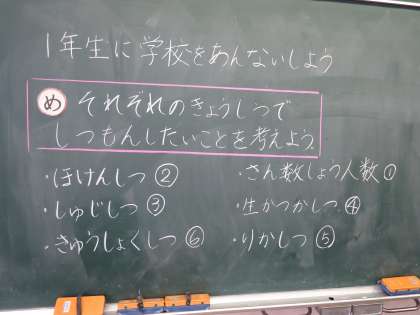 1年生に学校をあんないしよう
め それぞれのきょうしつで
しつもんしたいことを考えよう.
・ほけんしつ②
・しゅじしつ③
・きゅうしょくしつ⑥
・さん数しょう人数①
・生かつかしつ④
・りかしつ⑤